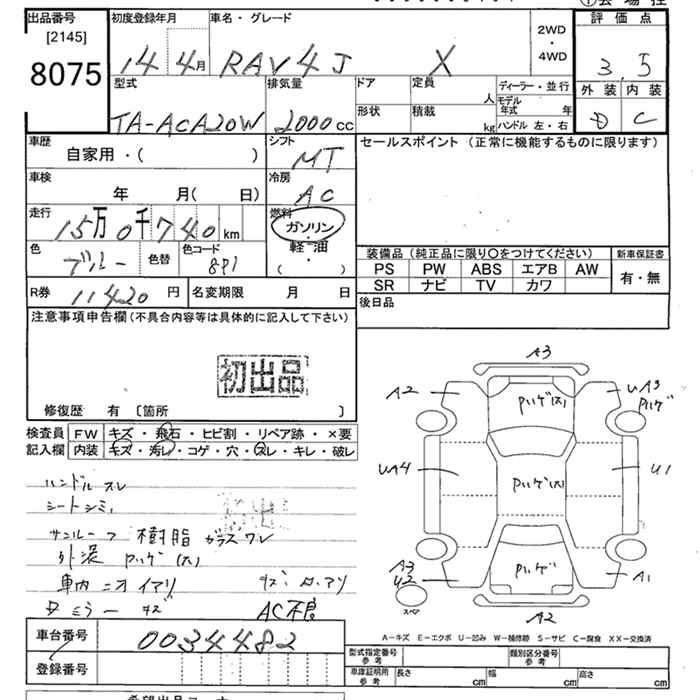 出品番号 [2145] 8075
初度登録年月 14 4月
車名・グレード RAV4 J X
2WD・4WD
評価点 3.5
外装 内装
D C
型式 TA-ACA20W
排気量 2000cc
ドア
形状
定員 人
積載 kg
ディーラー・並行
モデル年式 年
ハンドル 左・右
車歴 自家用・( )
シフト MT
セールスポイント (正常に機能するものに限ります)
車検 年 月( 日)
冷房 AC
走行 15万0千740km
燃料 ガソリン・軽・油 ( ・ )
色 ブルー 色替
色コード 8P1
装備品 (純正品に限り○をつけてください)
新車保証書
PS PW ABS エアB AW
SR ナビ TV カワ
有・無
R券 11420円
名変期限 月 日
後日品
注意事項申告欄(不具合内容等は具体的に記入して下さい)
初出品
修復歴 有 〔箇所 〕
検査員記入欄
FW キズ・飛石・ヒビ割・リペア跡・×要
内装 キズ・汚レ・コゲ・穴・スレ・キレ・破レ
ハンドル スレ
シートシミ
サンルーフ 樹脂 ガラス ワレ
外装
車内ニオイアリ
ミラー キズ
AC不良
A3
A2
UA3
UA4
U1
A3
U2
A1
A2
スペア
A-キズ E-エクボ U-凹み W-補修跡 S-サビ C-腐食 XX-交換済
車台番号 0034482
登録番号
型式指定番号 参考
類別区分番号 参考
車庫証明用 参考 長さ cm 幅 cm 高さ cm